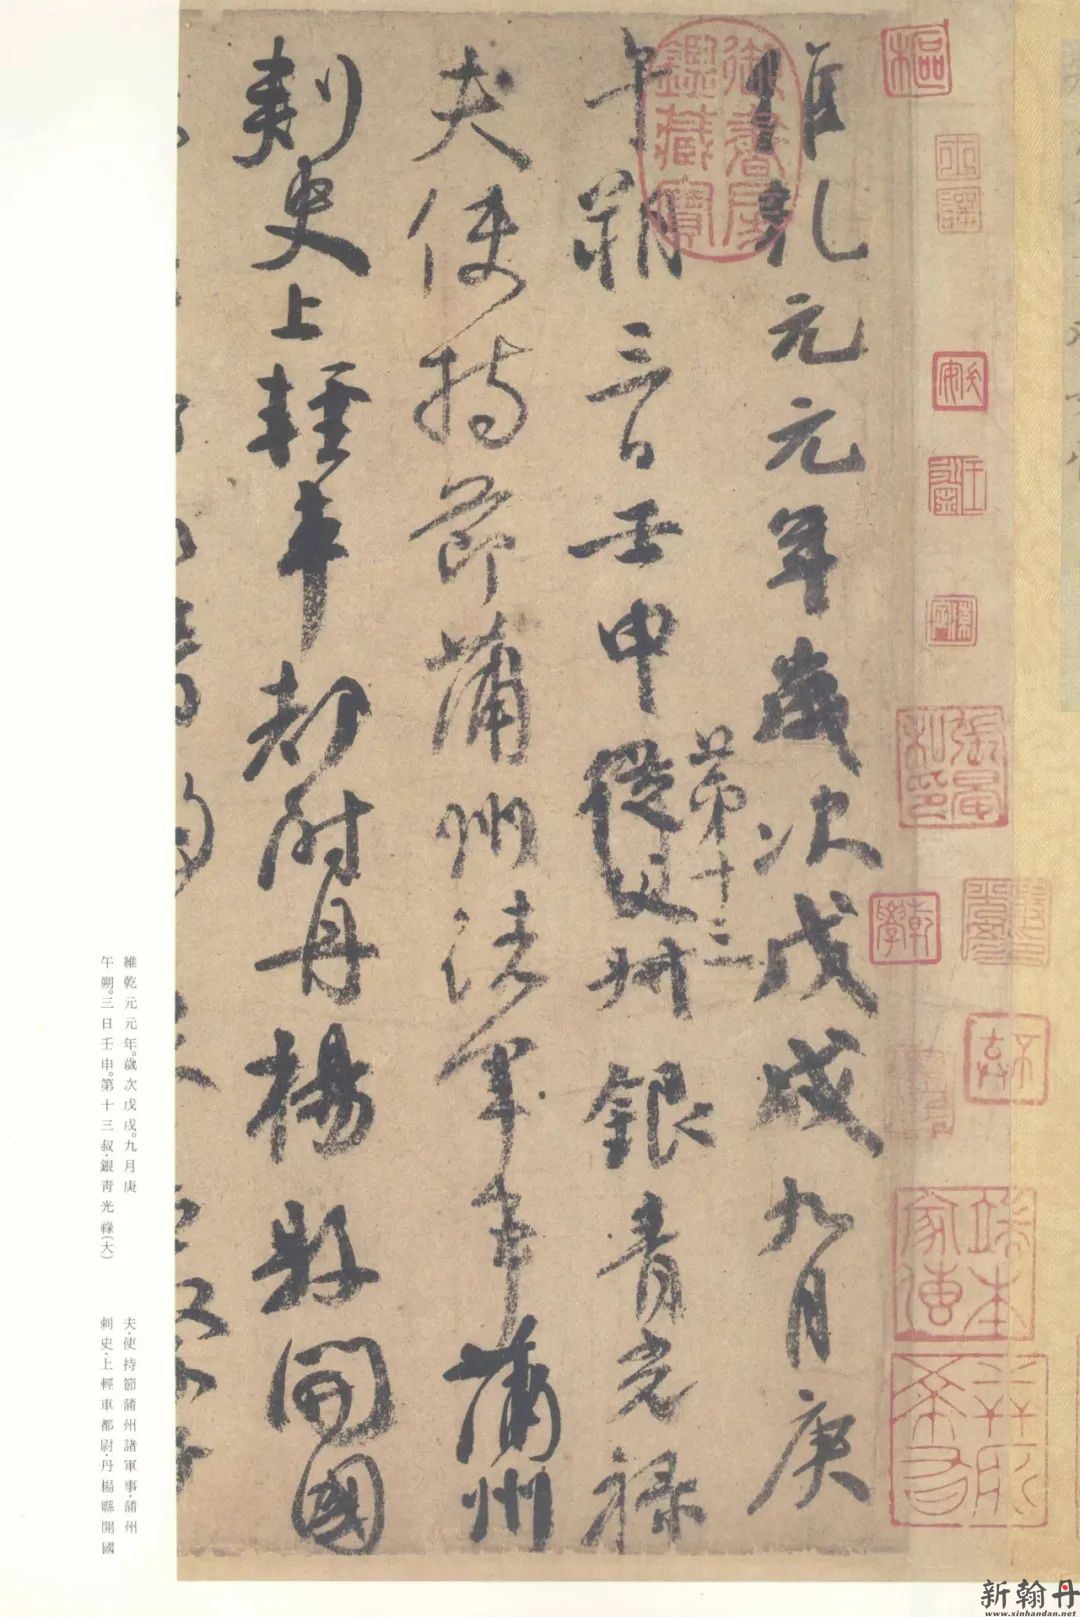 維乾元元年歲次戊戌九月庚
午朔三日壬申從父
第十三
叔銀青光祿
夫使持節蒲州諸軍事蒲州
刺史上輕車都尉丹楊縣開國
御書房鑑藏寶
樞
安
張晏私印
乾學
端本家傳
維乾元元年。歲次戊戌。九月庚
午朔。三日壬申。第十三叔·銀青光祿(大)
夫·使持節蒲州諸軍事·蒲州
刺史·上輕車都尉·丹楊縣開國
新翰丹
www.xinhandan.net